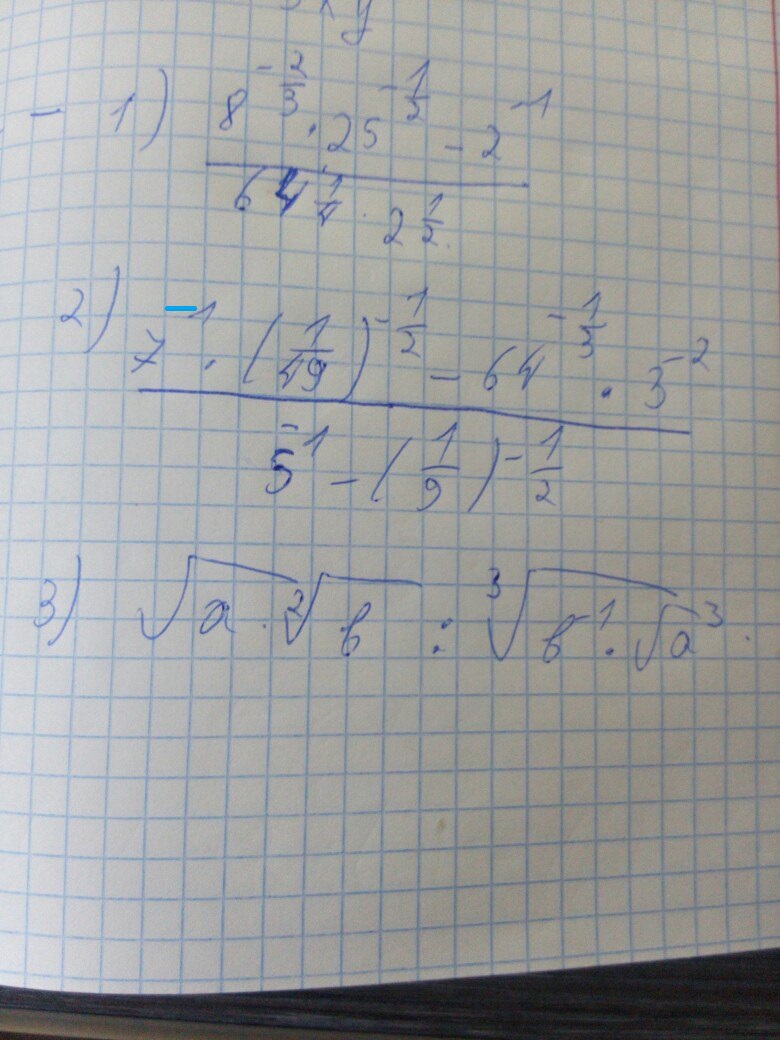 1) \frac{8^{-\frac{2}{3}} \cdot 25^{-\frac{1}{2}} - 2^{-1}}{64^{\frac{1}{4}} \cdot 2^{\frac{1}{2}}}
2) \frac{7^{-1} \cdot (\frac{1}{49})^{-\frac{1}{2}} - 64^{-\frac{1}{3}} \cdot 3^{-2}}{5^{-1} - (\frac{1}{9})^{-\frac{1}{2}}}
3) \sqrt{a} \cdot \sqrt[2]{b} : \sqrt[3]{b^{-1} \cdot \sqrt{a}^{3}}.